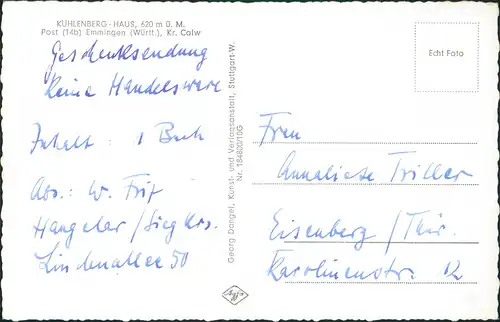 KUHLENBERG-HAUS, 620 m Ü. M.
Post (14b) Emmingen (Württ.), Kr. Calw
Geschenksendung
keine Handelsware
Inhalt: 1 Buch
Abs.: W. Fritz
Hangelar/Siegkrs.
Lindenallee 50
Georg Dangel, Kunst- und Verlagsanstalt, Stuttgart-W.
Nr. 184800/10G
Echt Foto
Frau
Anneliese Triller
Eisenberg/Thür.
Karolinenstr. 12
Agfa